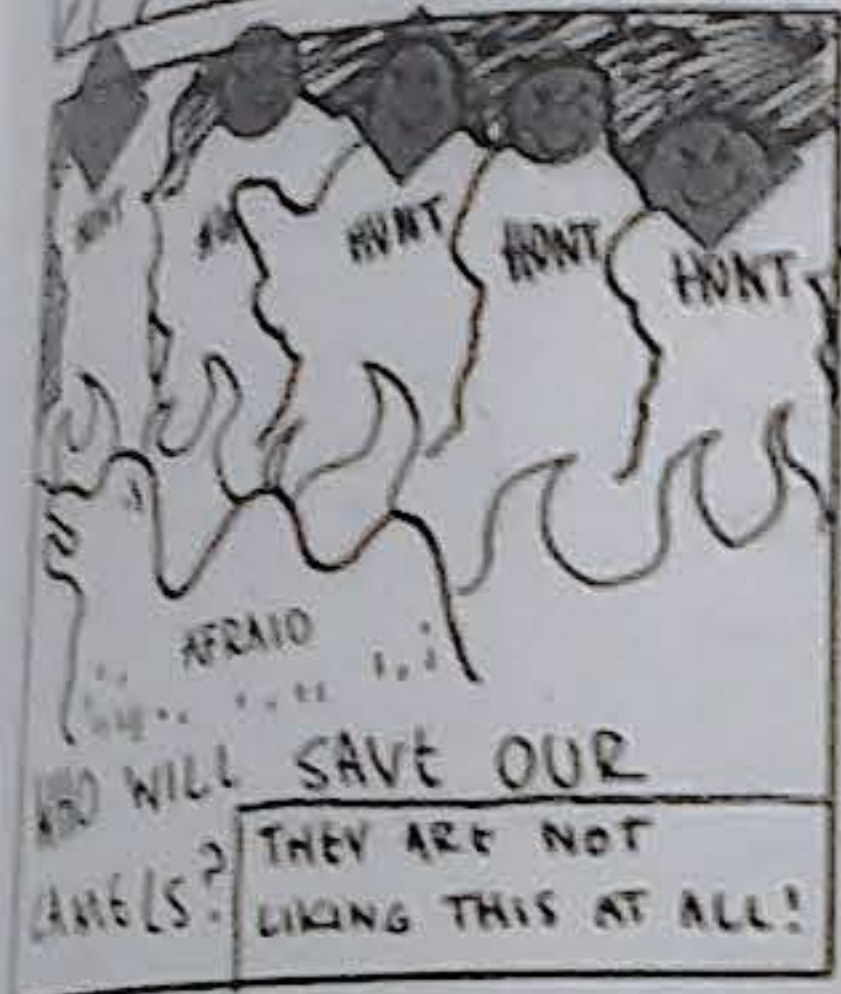 HUNT
HUNT
HONT
HONT
AFRAID
WHO WILL SAVE OUR
CAMELS?
THEY ARE NOT
LIKING THIS AT ALL!